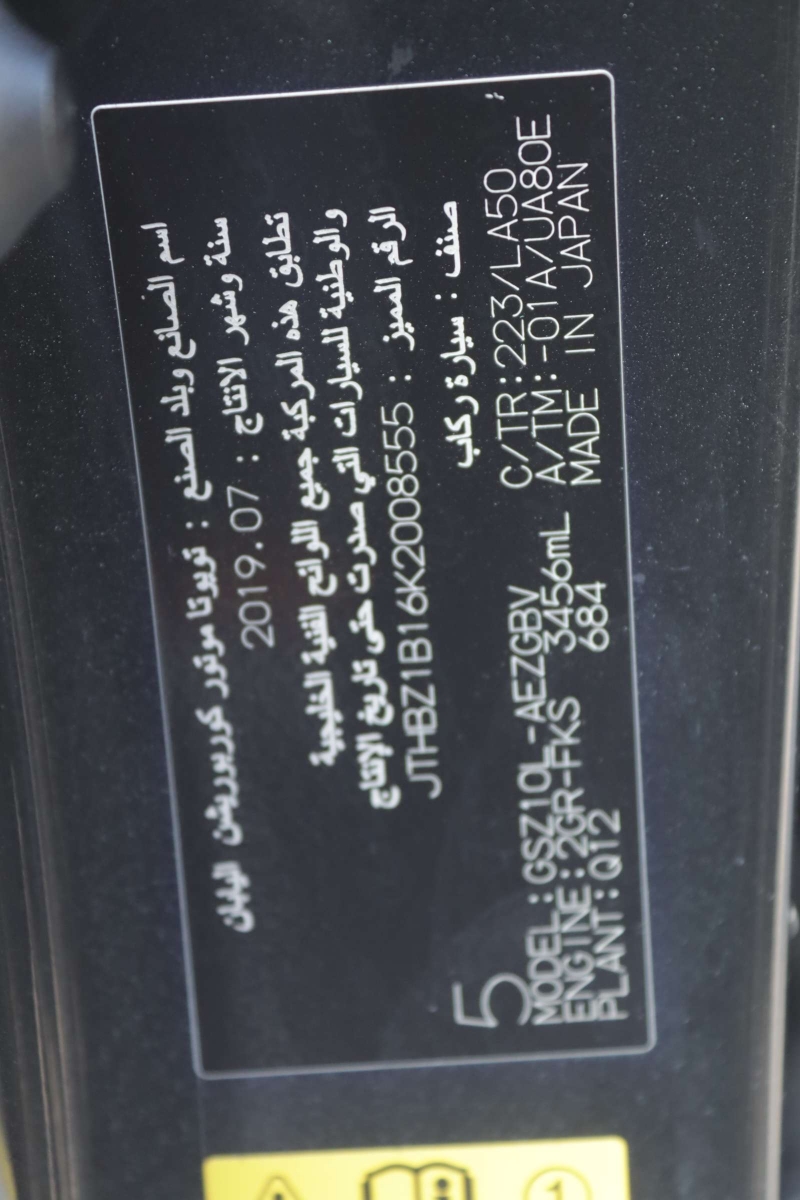 اسم الصانع وبلد الصنع : تويوتا موتور كوربوريشن اليابان
سنة وشهر الانتاج : 2019.07
تطابق هذه المركبة جميع اللوائح الفنية الخليجية
والوطنية للسيارات التي صدرت حتى تاريخ الإنتاج
الرقم المميز : JTHBZ1B16K2008555
صنف : سيارة ركاب
5
MODEL:GSZ10L-AEZGBV C/TR:223/LA50
ENGINE:2GR-FKS 3456mL A/TM:-01A/UA80E
PLANT:Q12 684 MADE IN JAPAN
i
1